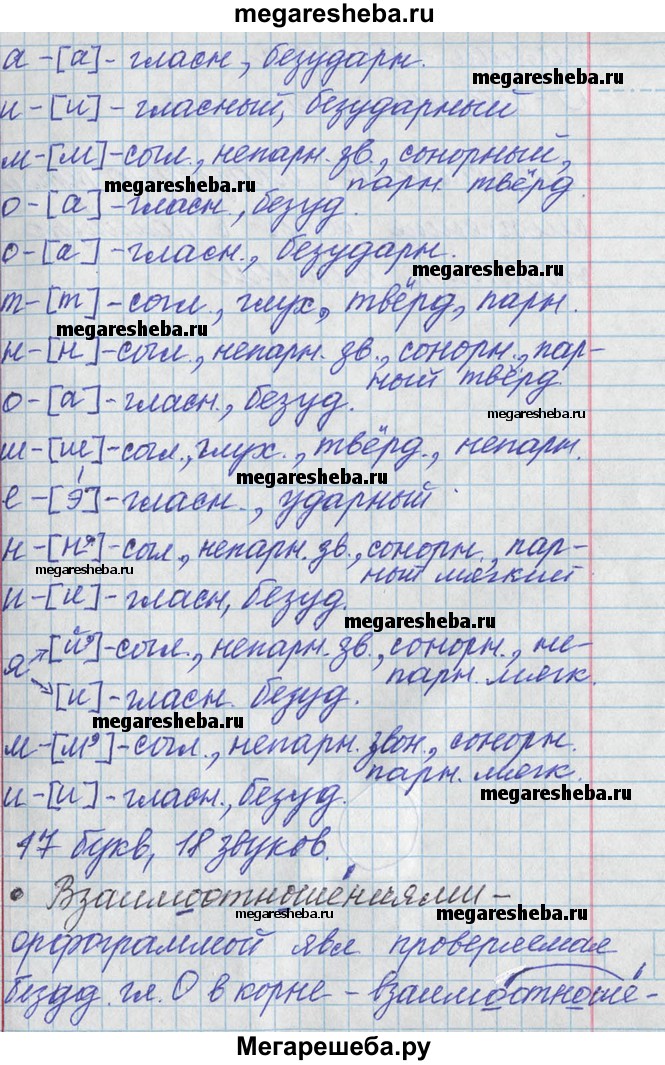 megaresheba.ru
а - [а] - гласн., безударн.
megaresheba.ru
и - [и] - гласный, безударный
м - [м] - согл., непарн. зв., сонорный,
парн. твёрд.
megaresheba.ru
о - [а] - гласн., безуд.
о - [а] - гласн., безударн.
megaresheba.ru
т - [т] - согл., глух., твёрд., парн.
megaresheba.ru
н - [н] - согл., непарн. зв., сонорн., пар-
ный твёрд.
о - [а] - гласн., безуд.
megaresheba.ru
ш - [ш] - согл., глух., твёрд., непарн.
megaresheba.ru
е - [э́] - гласн., ударный
н - [н'] - согл., непарн. зв., сонорн., пар-
ный мягкий
megaresheba.ru
и - [и] - гласн, безуд.
megaresheba.ru
я [й'] - согл., непарн. зв., сонорн., не-
парн. мягк.
[и] - гласн. безуд.
megaresheba.ru
м - [м'] - согл., непарн. звон., сонорн.
парн. мягк.
и - [и] - гласн., безуд.
megaresheba.ru
17 букв, 18 звуков.
• Взаимоотноше́ниями -
megaresheba.ru
орфограммой явл проверяемая
безуд. гл. О в корне - взаимоотноше́-
megaresheba.ru
Мегарешеба.ру